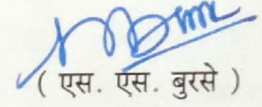 ( एस. एस. बुरसे )